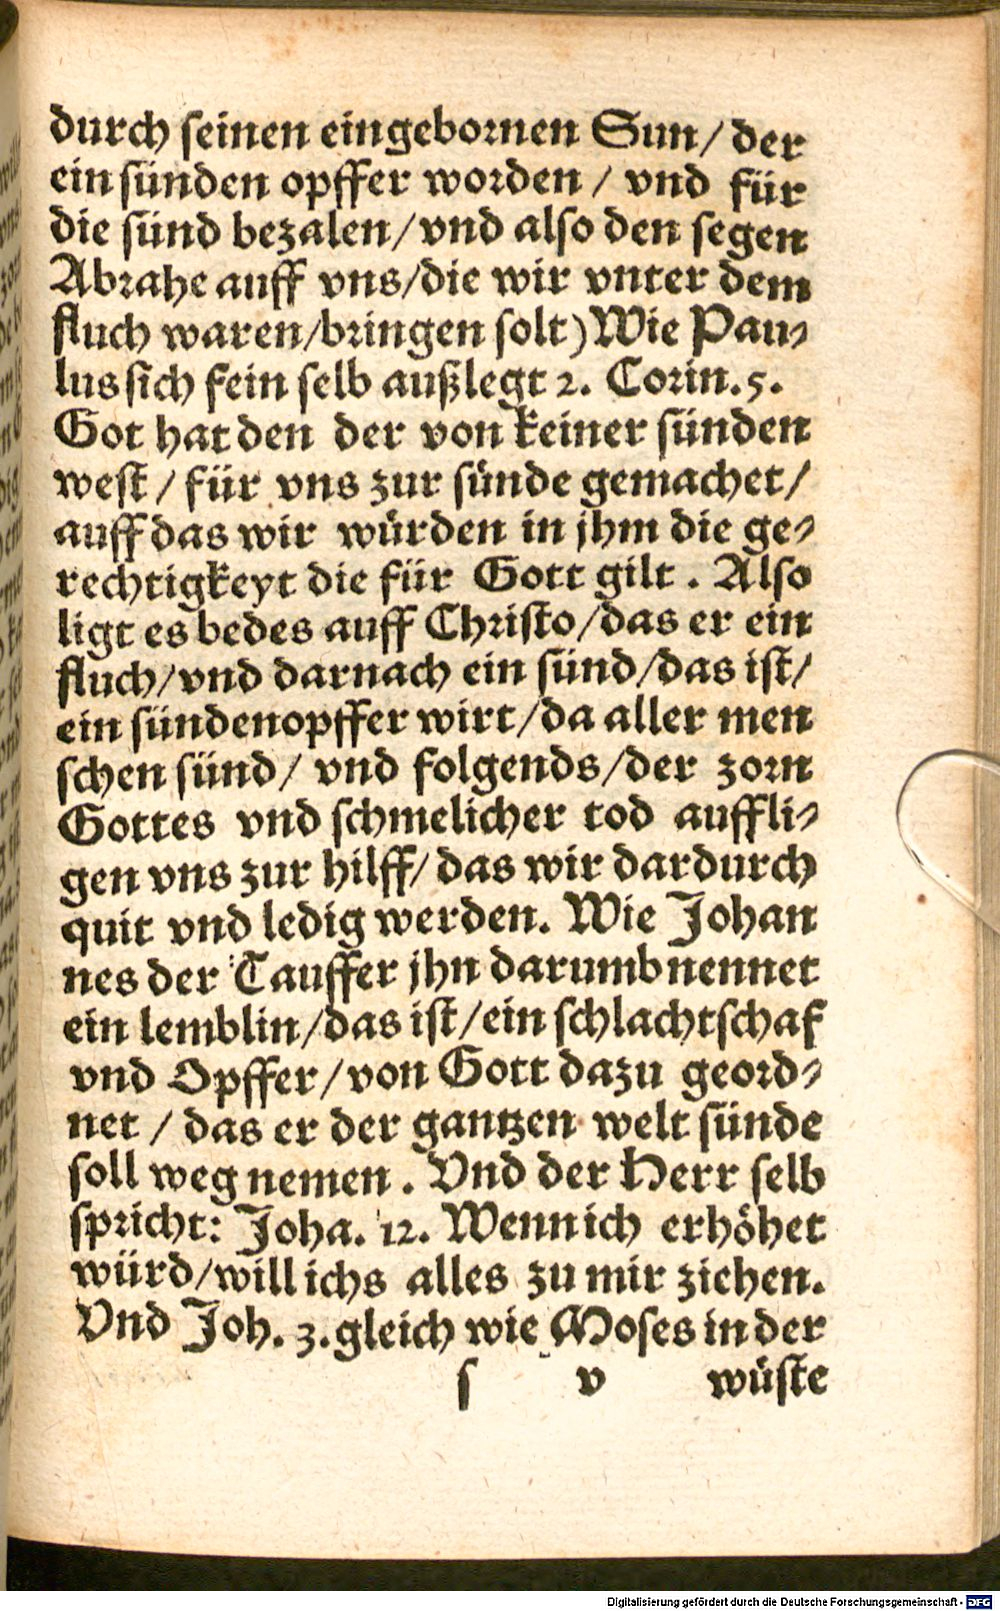 durch seinen eingebornen Sun / der
ein sünden opffer worden / vnd für
die sünd bezalen / vnd also den segen
Abrahe auff vns / die wir vnter dem
fluch waren / bringen solt) Wie Pau⸗
lus sich fein selb außlegt 2. Corin. 5.
Got hat den der von keiner sünden
west / für vns zur sünde gemachet /
auff das wir würden in jhm die ge⸗
rechtigkeyt die für Gott gilt. Also
ligt es bedes auff Christo / das er ein
fluch / vnd darnach ein sünd / das ist /
ein sündenopffer wirt / da aller men
schen sünd / vnd folgends / der zorn
Gottes vnd schmelicher tod auffli⸗
gen vns zur hilff / das wir dardurch
quit vnd ledig werden. Wie Johan
nes der Tauffer jhn darumb nennet
ein lemblin / das ist / ein schlachtschaf
vnd Opffer / von Gott dazu geord⸗
net / das er der gantzen welt sünde
soll weg nemen. Vnd der Herr selb
spricht: Joha. 12. Wenn ich erhöhet
würd / will ichs alles zu mir ziehen.
Vnd Joh. 3. gleich wie Moses in der
s v wüste
Digitalisierung gefördert durch die Deutsche Forschungsgemeinschaft - DFG